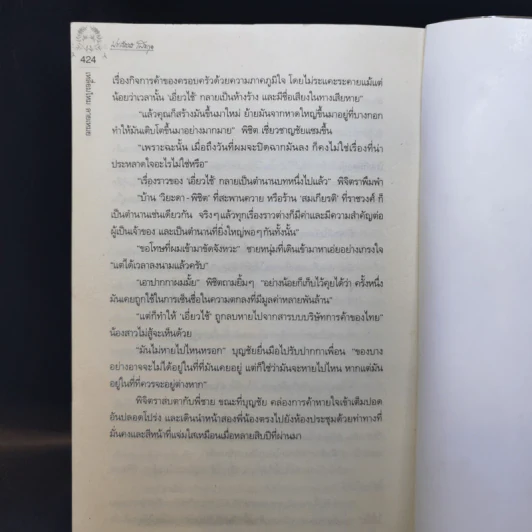 424
เรื่องกิจการค้าของครอบครัวด้วยความภาคภูมิใจ โดยไม่ระแคะระคายแม้แต่
น้อยว่าเวลานั้น 'เอี่ยวไช้' กลายเป็นห้างร้าง และมีชื่อเสียงในทางเสียหาย"
"แล้วคุณก็สร้างมันขึ้นมาใหม่ ย้ายมันจากหาดใหญ่ขึ้นมาอยู่ที่บางกอก
ทำให้มันเติบโตขึ้นมาอย่างมากมาย" พิชิต เชี่ยวชาญชัยแซมขึ้น
"เพราะฉะนั้น เมื่อถึงวันที่ผมจะปิดฉากมันลง ก็คงไม่ใช่เรื่องที่น่า
ประหลาดใจอะไรไม่ใช่หรือ"
"เรื่องราวของ 'เอี่ยวไช้' กลายเป็นตำนานบทหนึ่งไปแล้ว" พิจิตราพึมพำ
"บ้าน 'วิยะดา-พิชิต' ที่สะพานควาย หรือร้าน 'สมเกียรติ' ที่ราชวงศ์ ก็
เป็นตำนานเช่นเดียวกัน จริงๆแล้วทุกเรื่องราวต่างก็มีค่าและมีความสำคัญต่อ
ผู้เป็นเจ้าของ และเป็นตำนานที่ยิ่งใหญ่พอๆกันทั้งนั้น"
"ขอโทษที่ผมเข้ามาขัดจังหวะ" ชายหนุ่มที่เดินเข้ามาหาเอ่ยอย่างเกรงใจ
"แต่ได้เวลาลงนามแล้วครับ"
"เอาปากกาผมมั้ย" พิชิตถามยิ้มๆ "อย่างน้อยก็เก็บไว้คุยได้ว่า ครั้งหนึ่ง
มันเคยถูกใช้ในการเซ็นชื่อในความตกลงที่มีมูลค่าหลายพันล้าน"
"แต่ก็ทำให้ 'เอี่ยวไช้' ถูกลบหายไปจากสารบบบริษัทการค้าของไทย"
น้องสาวไม่สู้จะเห็นด้วย
"มันไม่หายไปไหนหรอก" บุญชัยยื่นมือไปรับปากกาเพื่อน "ของบาง
อย่างอาจจะไม่ได้อยู่ในที่ที่มันเคยอยู่ แต่ก็ใช่ว่ามันจะหายไปไหน หากแต่มัน
อยู่ในที่ที่ควรจะอยู่ต่างหาก"
พิจิตราสบตากับพี่ชาย ขณะที่บุญชัย คล่องการค้าหายใจเข้าเต็มปอด
อันปลอดโปร่ง และเดินนำหน้าสองพี่น้องตรงไปยังห้องประชุมด้วยท่าทางที่
มั่นคงและสีหน้าที่แจ่มใสเหมือนเมื่อหลายสิบปีที่ผ่านมา